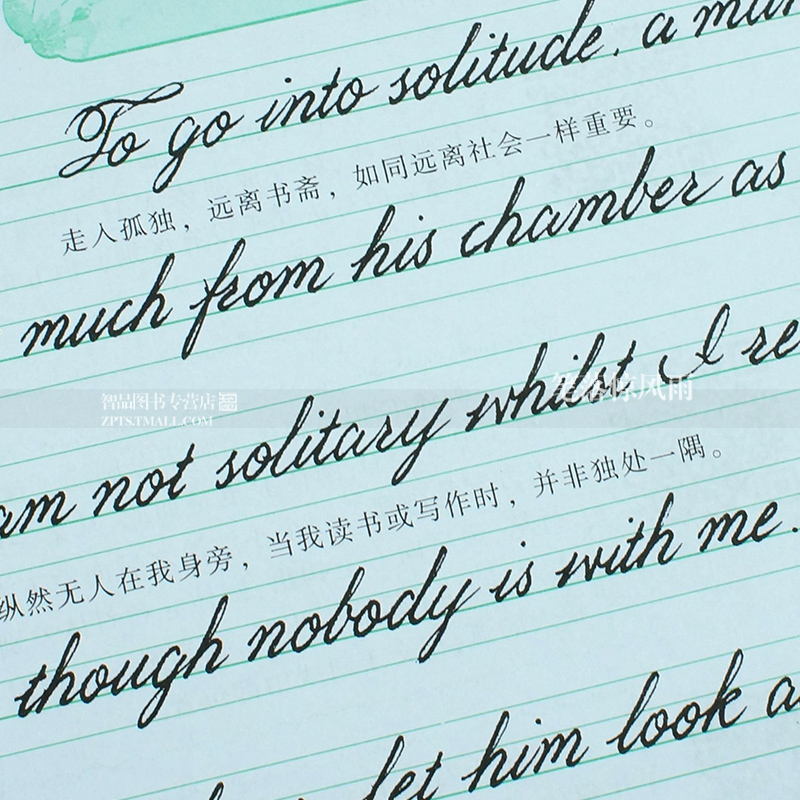 To go into solitude, a man
走入孤独，远离书斋，如同远离社会一样重要。
much from his chamber as
am not solitary whilst I re
智品图书专营店
ZPTS.TMALL.COM
笑落惊风雨
纵然无人在我身旁，当我读书或写作时，并非独处一隅。
though nobody is with me.
let him look a